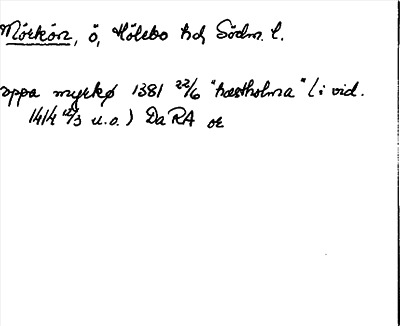 Mörkön, ö, Hölebo hd, Södm. l.
oppa myrkø 1381 22/6 "hæstholma" (i vid.
1414 12/3 u.o.) DaRA or